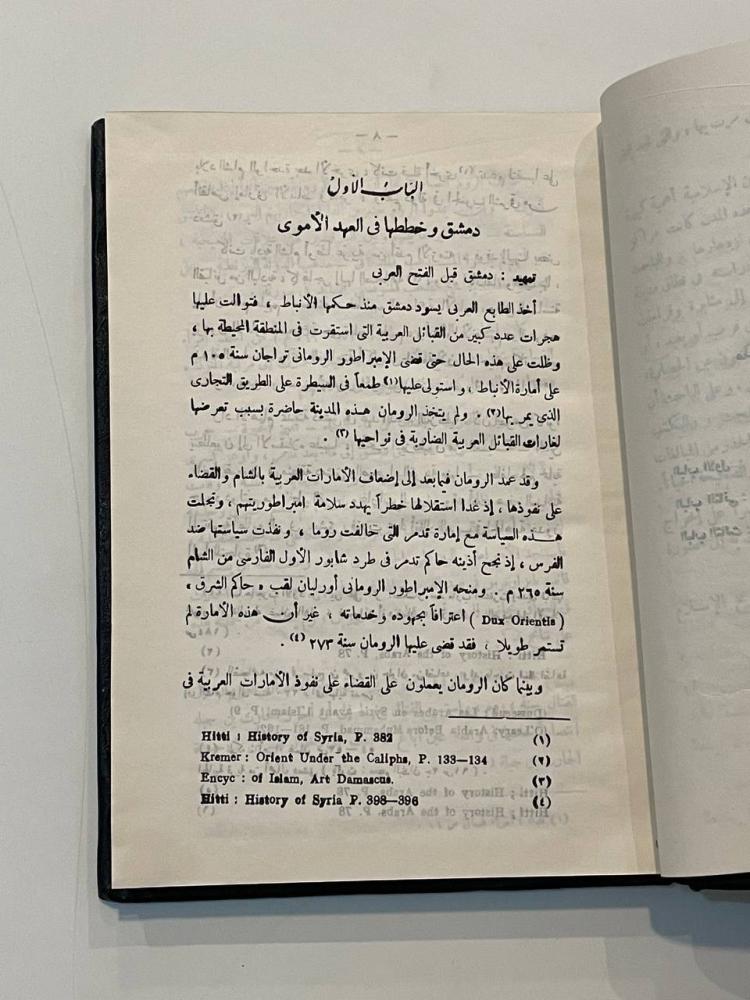 الباب الأول
دمشق وخططها فى العهد الأموى
تمهيد : دمشق قبل الفتح العربى
أخذ الطابع العربى يسود دمشق منذ حكمها الأنباط ، فتوالت عليها
هجرات عدد كبير من القبائل العربية التى استقرت فى المنطقة المحيطة بها ،
وظلت على هذه الحال حتى قضى الإمبراطور الرومانى تراجان سنة ١٠٥ م
على أمارة الأنباط ، واستولى عليها (١) طمعاً فى السيطرة على الطريق التجارى
الذى يمر بها (٢) . ولم يتخذ الرومان هذه المدينة حاضرة بسبب تعرضها
لغارات القبائل العربية الضاربة فى نواحيها (٣) .
وقد عمد الرومان فيما بعد إلى إضعاف الأمارات العربية بالشام والقضاء
على نفوذها ، إذ غدا استقلالها خطراً يهدد سلامة امبراطوريتهم ، وتجلت
هذه السياسة مع إمارة تدمر التى حالفت روما ، ونفذت سياستها ضد
الفرس ، إذ نجح أذينه حاكم تدمر فى طرد شابور الأول الفارسى من الشام
سنة ٢٦٥ م . ومنحه الإمبراطور الرومانى أورليان لقب « حاكم الشرق ،
( Dux Orientis ) اعترافاً بجهوده وخدماته ، غير أن هذه الأمارة لم
تستمر طويلا ، فقد قضى عليها الرومان سنة ٢٧٣ (٤) .
وبينما كان الرومان يعملون على القضاء على نفوذ الأمارات العربية فى
(١) Hitti : History of Syria, P. 382
(٢) Kremer : Orient Under the Caliphs, P. 133—134
(٣) Encyc : of Islam, Art Damascus.
(٤) Hitti : History of Syria P. 398—396